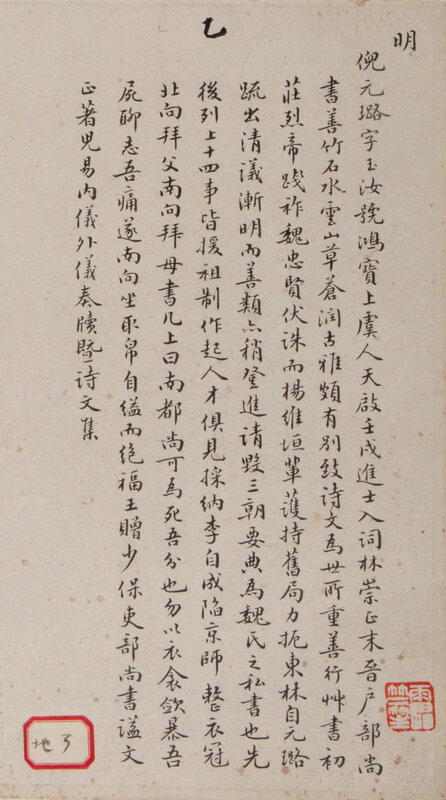 明
乙
倪元璐字玉汝號鴻寶上虞人天啟壬戌進士入詞林崇正末晉户部尚
書善竹石水雲山草蒼潤古雅頗有别致詩文為世所重善行艸書初
莊烈帝踐祚魏忠賢伏誅而楊維垣輩護持舊局力扼東林自元璐
疏出清議漸明而善類亦稍登進請毀三朝要典為魏氏之私書也先
後列上十四事皆援祖制作起人才俱見採納李自成陷京師整衣冠
北向拜父南向拜母書几上曰南都尚可為死吾分也勿以衣衾歛暴吾
屍聊志吾痛遂南向坐取帛自縊而絶福王贈少保吏部尚書謚文
正著兒易内儀外儀奏牘暨詩文集
地 3